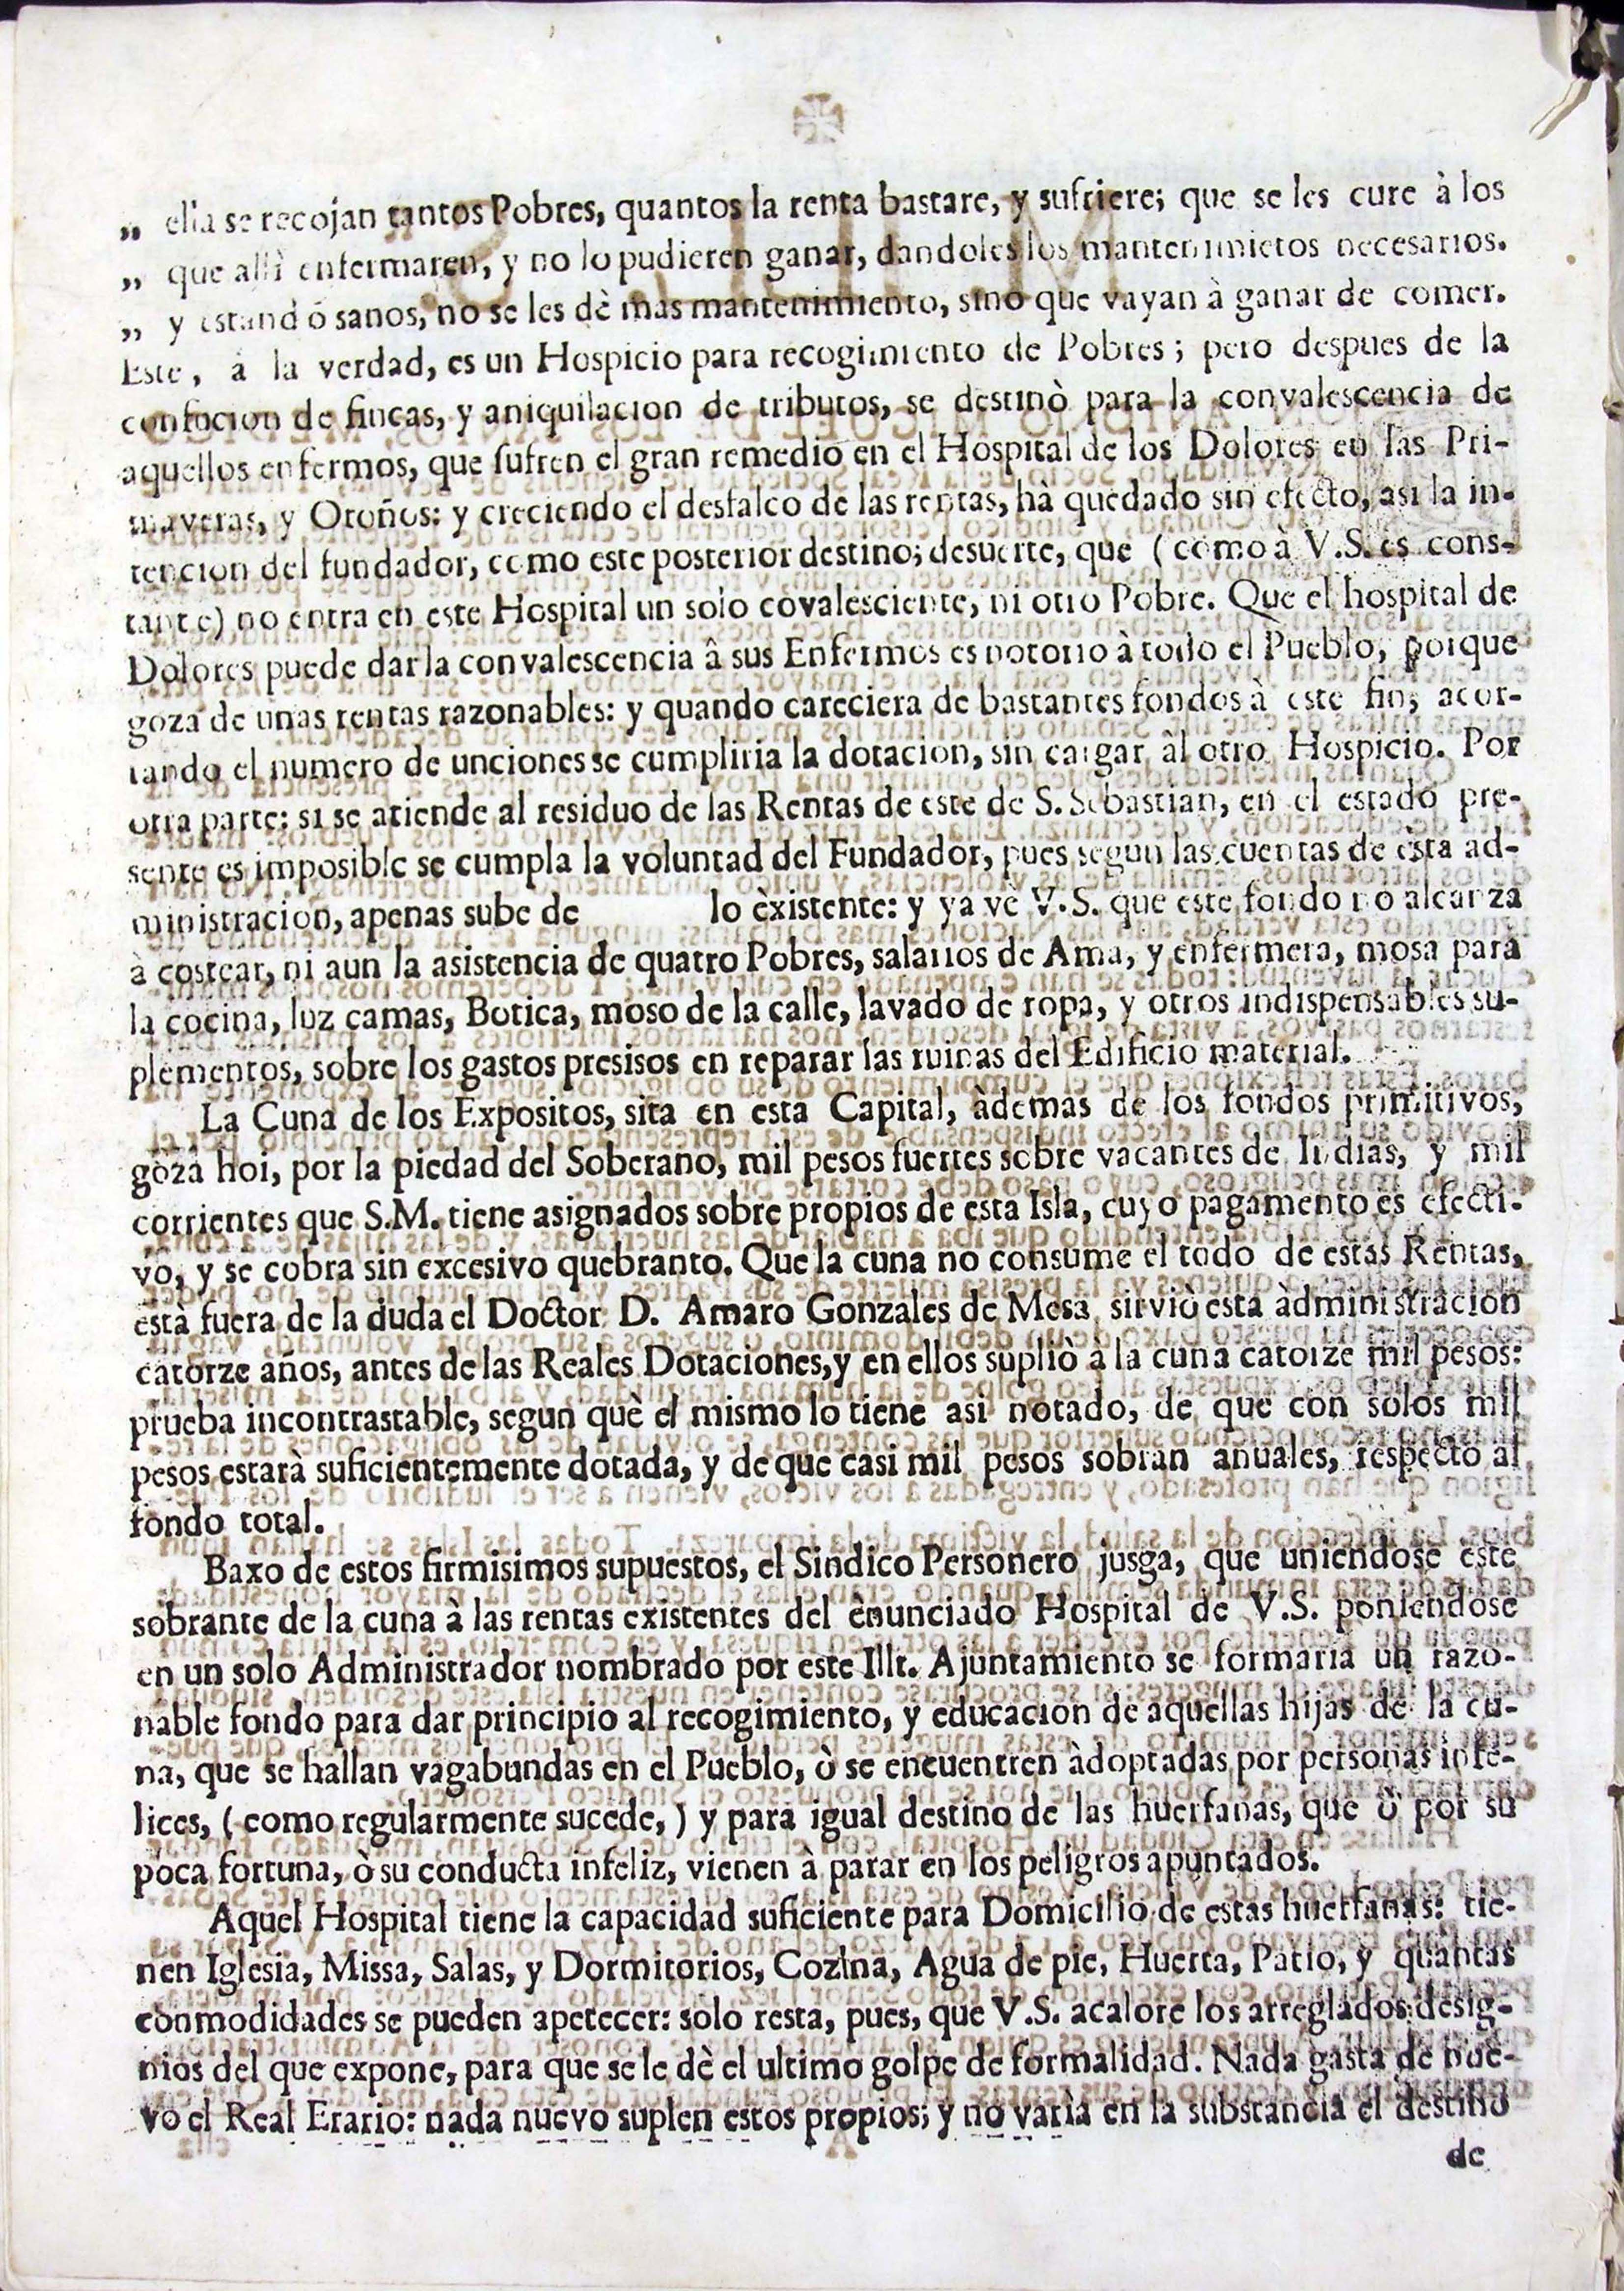 „ ella se recojan tantos Pobres, quantos la renta bastare, y sufriere; que se les cure à los
„ que allì enfermaren, y no lo pudieren ganar, dandoles los mantenimietos necesarios.
„ y estand ó sanos, no se les dè mas mantenimiento, sino que vayan à ganar de comer.
Este, a la verdad, es un Hospicio para recogimiento de Pobres; pero despues de la
confucion de fincas, y aniquilacion de tributos, se destinò para la convalescencia de
aquellos enfermos, que sufren el gran remedio en el Hospital de los Dolores en las Pri-
maveras, y Otoños: y creciendo el desfalco de las rentas, hà quedado sin efecto, asi la in-
tencion del fundador, como este posterior destino; desuerte, que (como à V.S. es cons-
tante) no entra en este Hospital un solo covalesciente, ni otro Pobre. Que el hospital de
Dolores puede dar la convalescencia â sus Enfermos es notorio à todo el Pueblo, porque
goza de unas rentas razonables: y quando careciera de bastantes fondos à este fin, acor-
tando el numero de unciones se cumpliria la dotacion, sin cargar àl otro Hospicio. Por
otra parte: si se atiende al residuo de las Rentas de este de S. Sebastian, en el estado pre-
sente es imposible se cumpla la voluntad del Fundador, pues segun las cuentas de èsta ad-
ministracion, apenas sube de lo èxistente: y ya vè V.S. que este fondo no alcanza
à costear, ni aun la asistencia de quatro Pobres, salarios de Ama, y enfermera, mosa para
la cocina, luz camas, Botica, moso de la calle, lavado de ropa, y otros indispensables su-
plementos, sobre los gastos presisos en reparar las ruinas del Edificio material.
La Cuna de los Expositos, sita en esta Capital, àdemas de los fondos primitivos,
goza hoi, por la piedad del Soberano, mil pesos fuertes sobre vacantes de Indias, y mil
corrientes que S.M. tiene asignados sobre propios de esta Isla, cuyo pagamento es efecti-
vo, y se cobra sin excesivo quebranto. Que la cuna no consume el todo de estas Rentas,
està fuera de la duda el Doctor D. Amaro Gonzales de Mesa sirviò esta àdministracion
catorze años, antes de las Reales Dotaciones, y en ellos supliò à la cuna catorze mil pesos:
prueba incontrastable, segun què el mismo lo tiene asi notado, de que con solos mil
pesos estarà suficientemente dotada, y de que casi mil pesos sobran anuales, respecto àl
fondo total.
Baxo de estos firmisimos supuestos, el Sindico Personero jusga, que uniendose este
sobrante de la cuna à las rentas existentes del ènunciado Hospital de V.S. poniendose
en un solo Administrador nombrado por este Illr. Ajuntamiento se formaria un razo-
nable fondo para dar principio al recogimiento, y educacion de aquellas hijas de la cu-
na, que se hallan vagabundas en el Pueblo, ò se encuentren àdoptadas por personas infe-
lices, (como regularmente sucede,) y para igual destino de las huerfanas, que ò por su
poca fortuna, ò su conducta infeliz, vienen à parar en los peligros apuntados.
Aquel Hospital tiene la capacidad suficiente para Domicilio de estas huerfanas: tie-
nen Iglesia, Missa, Salas, y Dormitorios, Cozina, Agua de pie, Huerta, Patio, y quantas
conmodidades se pueden apetecer: solo resta, pues, que V.S. acalore los arreglados desig-
nios del que expone, para que se le dè el ultimo golpe de formalidad. Nada gasta de nue-
vo el Real Erario: nada nuevo suplen estos propios; y no varìa en la substancia el destino
de